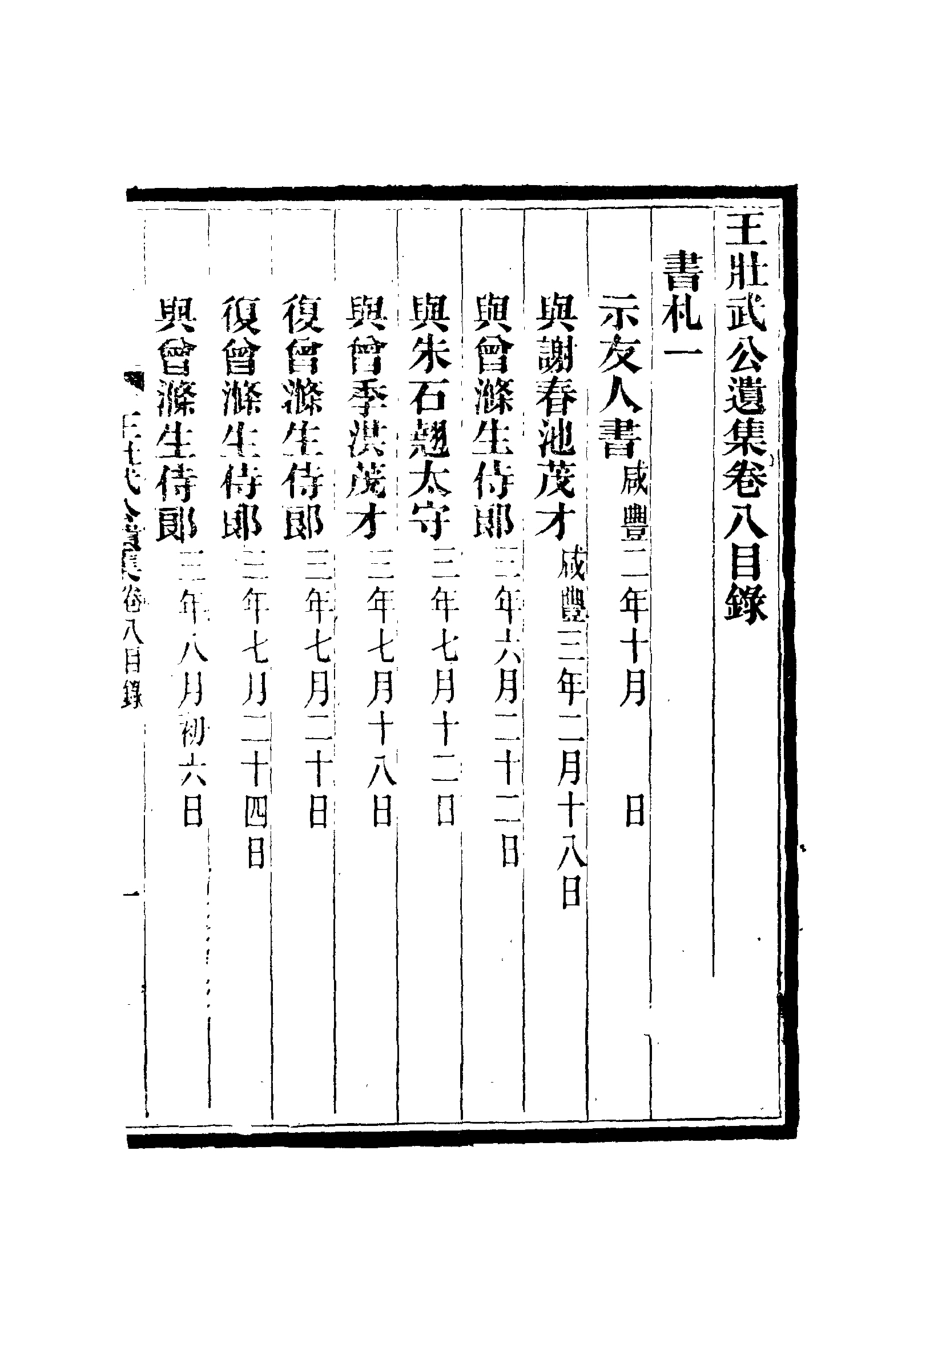 王壯武公遺集卷八目錄
書札一
示友人書咸豐二年十月　日
與謝春池茂才咸豐三年二月十八日
與曾滌生侍郎三年六月二十二日
與朱石翹太守三年七月十二日
與曾季洪茂才三年七月十八日
復曾滌生侍郎三年七月二十日
復曾滌生侍郎三年七月二十四日
與曾滌生侍郎三年八月初六日
王壯武公遺集卷八目錄　一